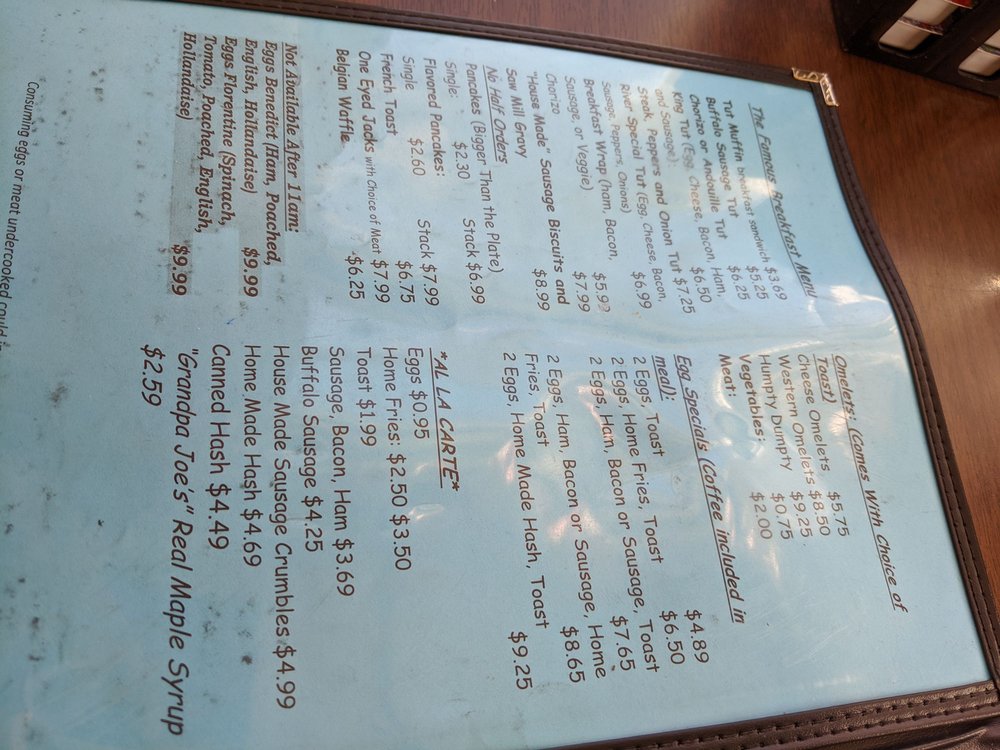 The Famous Breakfast Menu
Tut Muffin breakfast sandwich $3.69
Buffalo Sausage Tut $5.25
Chorizo or Andouille Tut $6.25
King Tut (Egg, Cheese, Bacon, Ham,
and Sausage) $6.50
Steak, Peppers and Onion Tut $7.25
River Special Tut (Egg, Cheese, Bacon,
Sausage, Peppers, Onions) $6.99
Breakfast Wrap (ham, Bacon,
Sausage, or Veggie) $5.99
Chorizo $7.99
"House Made" Sausage Biscuits and
Saw Mill Gravy $8.99
No Half Orders
Pancakes (Bigger Than the Plate)
Single: $2.30 Stack $6.99
Flavored Pancakes:
Single $2.60 Stack $7.99
French Toast $6.75
One Eyed Jacks with Choice of Meat $7.99
Belgian Waffle $6.25
Not Available After 11am:
Eggs Benedict (Ham, Poached,
English, Hollandaise) $9.99
Eggs Florentine (Spinach,
Tomato, Poached, English,
Hollandaise) $9.99
Omelets: (Comes With Choice of
Toast)
Cheese Omelets $5.75
Western Omelets $8.50
Humpty Dumpty $9.25
Vegetables: $0.75
Meat: $2.00
Egg Specials (Coffee included in
meal):
2 Eggs, Toast $4.89
2 Eggs, Home Fries, Toast $6.50
2 Eggs, Ham, Bacon or Sausage, Toast
$7.65
2 Eggs, Ham, Bacon or Sausage, Home
Fries, Toast $8.65
2 Eggs, Home Made Hash, Toast
$9.25
*AL LA CARTE*
Eggs $0.95
Home Fries: $2.50 $3.50
Toast $1.99
Sausage, Bacon, Ham $3.69
Buffalo Sausage $4.25
House Made Sausage Crumbles $4.99
Home Made Hash $4.69
Canned Hash $4.49
"Grandpa Joe's" Real Maple Syrup
$2.59
Consuming eggs or meat undercooked could